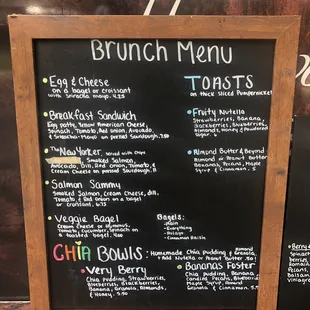 Brunch Menu
Egg & Cheese
on a bagel or croissant
with sriracha mayo. 4.25
Breakfast Sandwich
Egg patty, Yellow American Cheese,
Spinach, Tomato, Red onion, Avocado,
& Sriracha-Mayo on pressed Sourdough
The New Yorker served with chips
Smoked Salmon,
Avocado, Dill, Red onion, Tomato, &
Cream Cheese on pressed Sourdough.
Salmon Sammy
Smoked Salmon, Cream Cheese, dill,
Tomato, & Red onion on a bagel
or croissant.
Veggie Bagel
Cream Cheese or Hummus,
Tomato, Cucumber, Spinach on
a toasted bagel.
Bagels:
-Plain
-Everything
-Asiago
-Cinnamon Raisin
TOASTS
on thick sliced Pumpernickel
Fruity Nutella
Strawberries, Banana,
Blackberries, Blueberries,
Almonds, Honey & Powdered
Sugar
Almond Butter & Beyond
Almond or Peanut butter
Bananas, Pecans, Maple
Syrup & Cinnamon. 5
CHIA BOWLS
Homemade Chia pudding &
Granola
+ Add Nutella or Peanut Butter
Very Berry
Chia pudding, Strawberries,
Blueberries, Blackberries,
Banana, Granola, Almonds,
& Honey.
Bananas Foster
Chia pudding, Banana,
Candied Pecans, Blueberries
Maple Syrup, Almond
Granola & Cinnamon